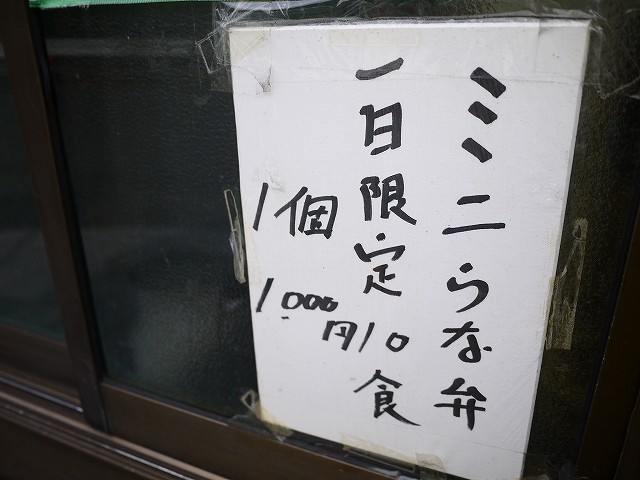 ミニらな弁
一日限定10食
1個
1000円